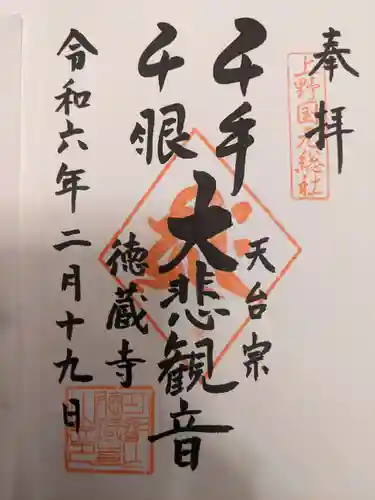 奉拝
上野国元総社
千手
千眼
大悲観音
天台宗
徳蔵寺
令和六年二月十九日